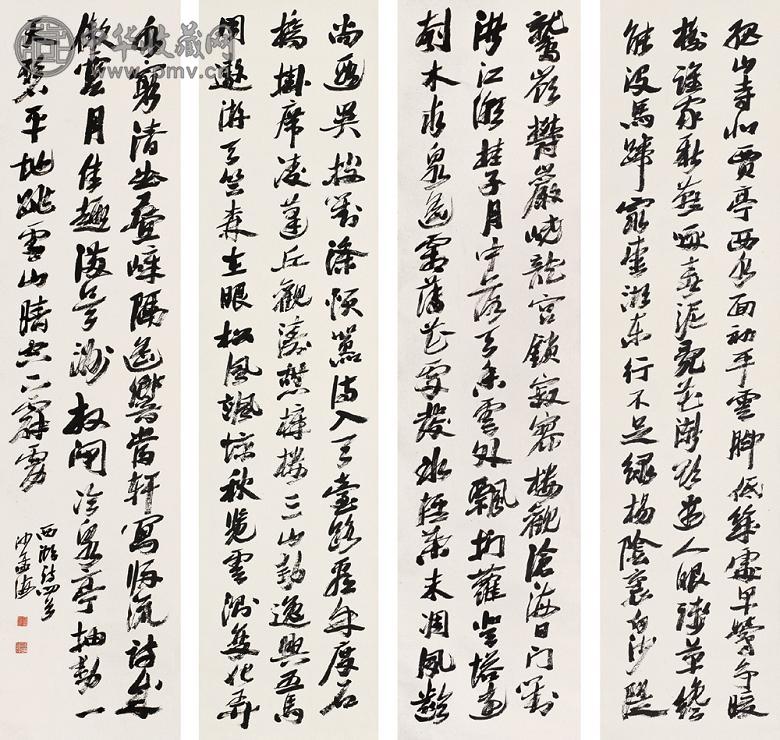 孤山寺北賈亭西水面初平雲腳低幾處早鶯爭暖
樹誰家新燕啄春泥亂花漸欲迷人眼淺草纔
能沒馬蹄最愛湖東行不足綠楊陰裏白沙隄
鷲嶺鬱巖嶢龍宮鎖寂寥樓觀滄海日門對
浙江潮桂子月中落天香雲外飄捫蘿登塔遠
刳木取泉遙霜薄花更發冰輕葉未凋夙齡
尚遐異搜對滌煩囂待入天臺路看余度石
橋掛席凌蓬丘觀濤憩樟樓三山動逸興五馬
同遨遊天竺森在眼松風颯驚秋覽雲測變化弄
水窮清幽疊嶂隔遙響當軒寫歸流詩成
傲雲月佳趣滿吳洲放閘冷泉亭抽動一
天碧平地跳雪山晴空下霹靂
西湖詩四首
沙孟海
中华收藏网
www.pmv.cn